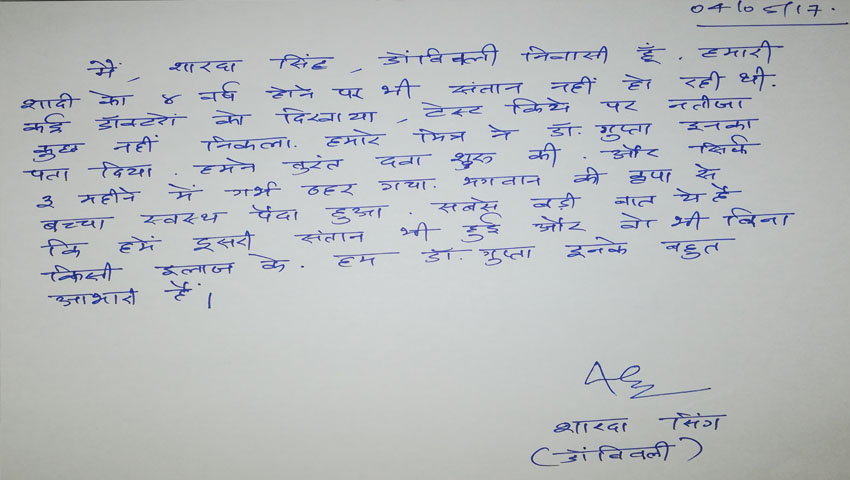 04/05/17.
मैं, शारदा सिंह, डोंबिवली निवासी हूँ. हमारी
शादी को ४ वर्ष होने पर भी संतान नहीं हो रही थी.
कई डॉक्टरों को दिखाया, टेस्ट किये पर नतीजा
कुछ नहीं निकला. हमारे मित्र ने डॉ. गुप्ता इनका
पता दिया. हमने तुरंत दवा शुरू की. और सिर्फ
३ महीने में गर्भ ठहर गया. भगवान की कृपा से
बच्चा स्वस्थ पैदा हुआ. सबसे बड़ी बात ये है
कि हमें दुसरी संतान भी हुई और वो भी बिना
किसी इलाज के. हम डॉ. गुप्ता इनके बहुत
आभारी हैं।
शारदा सिंग
(डोंबिवली)